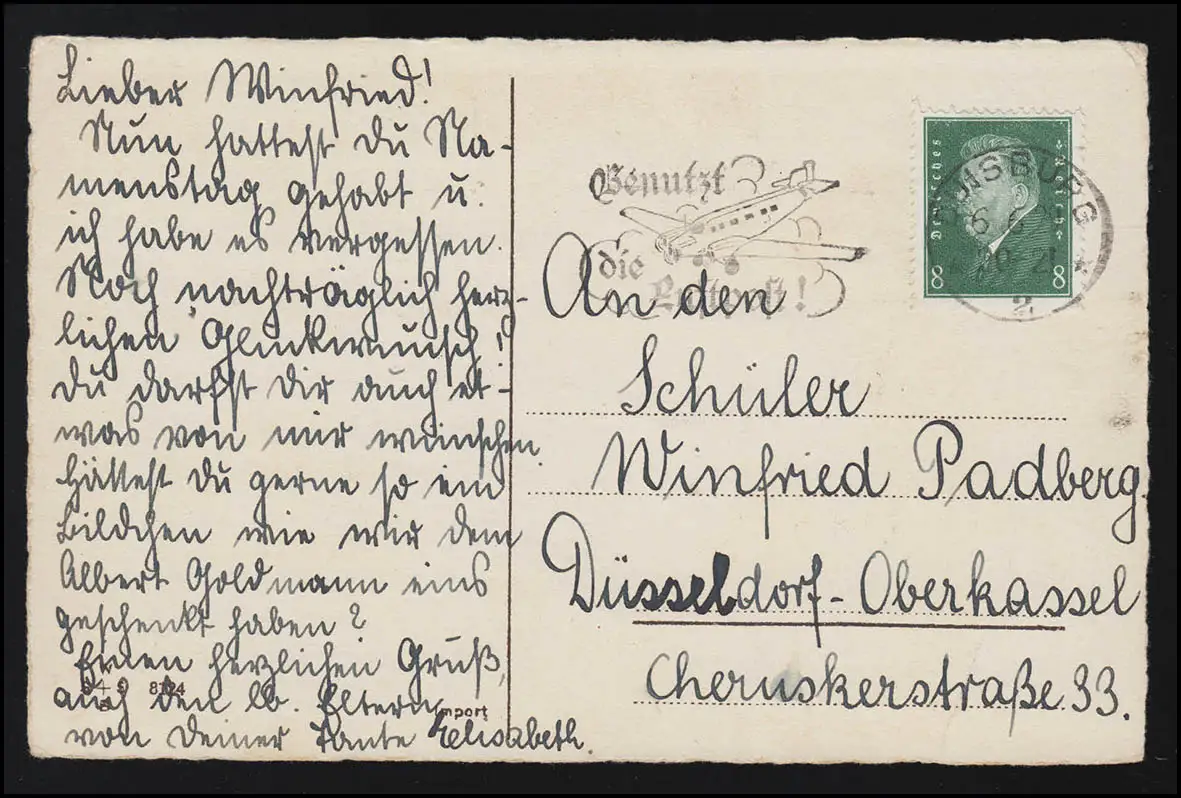 Lieber Winfried!
Nun hattest du Na-
menstag gehabt u.
ich habe es vergessen.
Noch nachträglich herz-
lichen Glückwunsch!
Du darfst dir auch et-
was von mir wünschen.
Hättest du gerne so ein
Bildchen wie wir dem
Albert Goldmann eins
geschenkt haben?
Einen herzlichen Gruß,
auch den lb. Eltern
von deiner Tante Elisabeth.
8124
Import
Benutzt
die
Luftpost!
Deutsches
Reich
8 8
DUISBURG
2
An den
Schüler
Winfried Padberg.
Düsseldorf-Oberkassel
Cheruskerstraße 33.